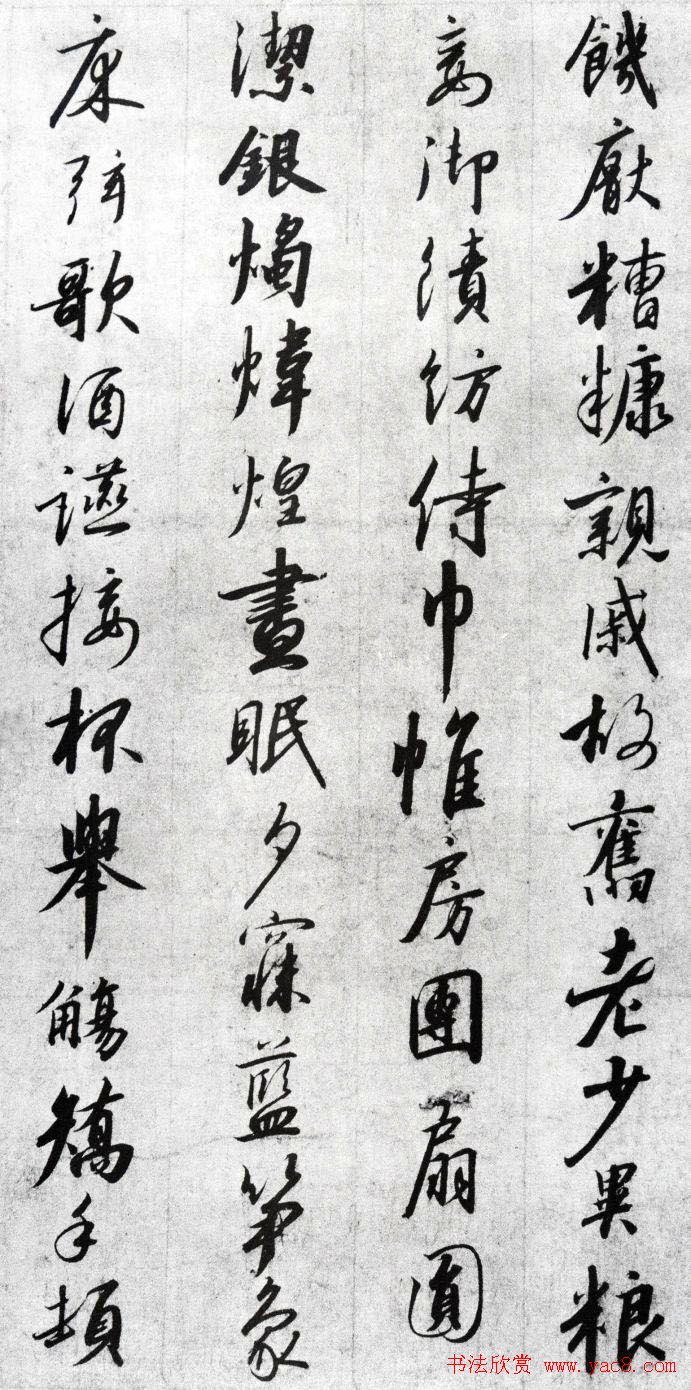 饑厭糟糠親戚故舊老少異粮
妾御績紡侍巾帷房團扇圓
潔銀燭煒煌晝眠夕寐藍笋象
床弦歌酒讌接杯舉觴矯手頓
书法欣赏 www.yac8.com